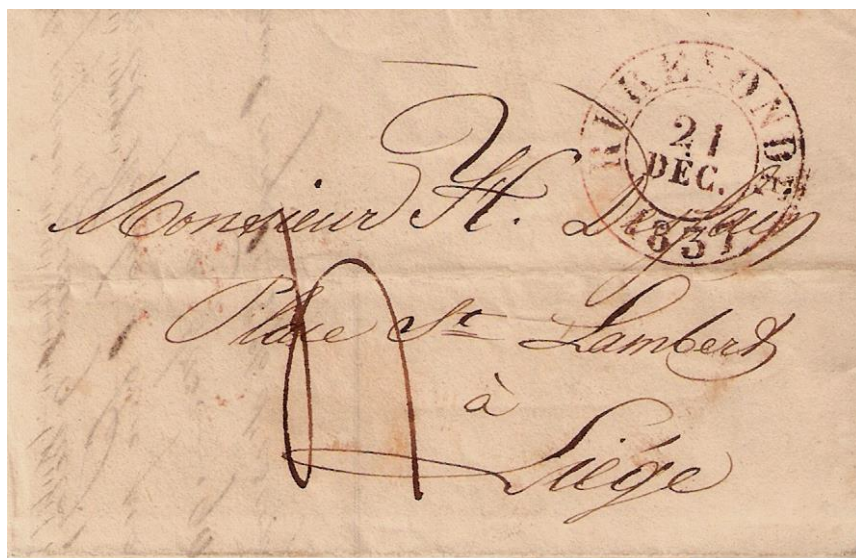 RUREMONDE
21
DÉC.
1837
Monsieur H.
Place St Lambert
à
Liége